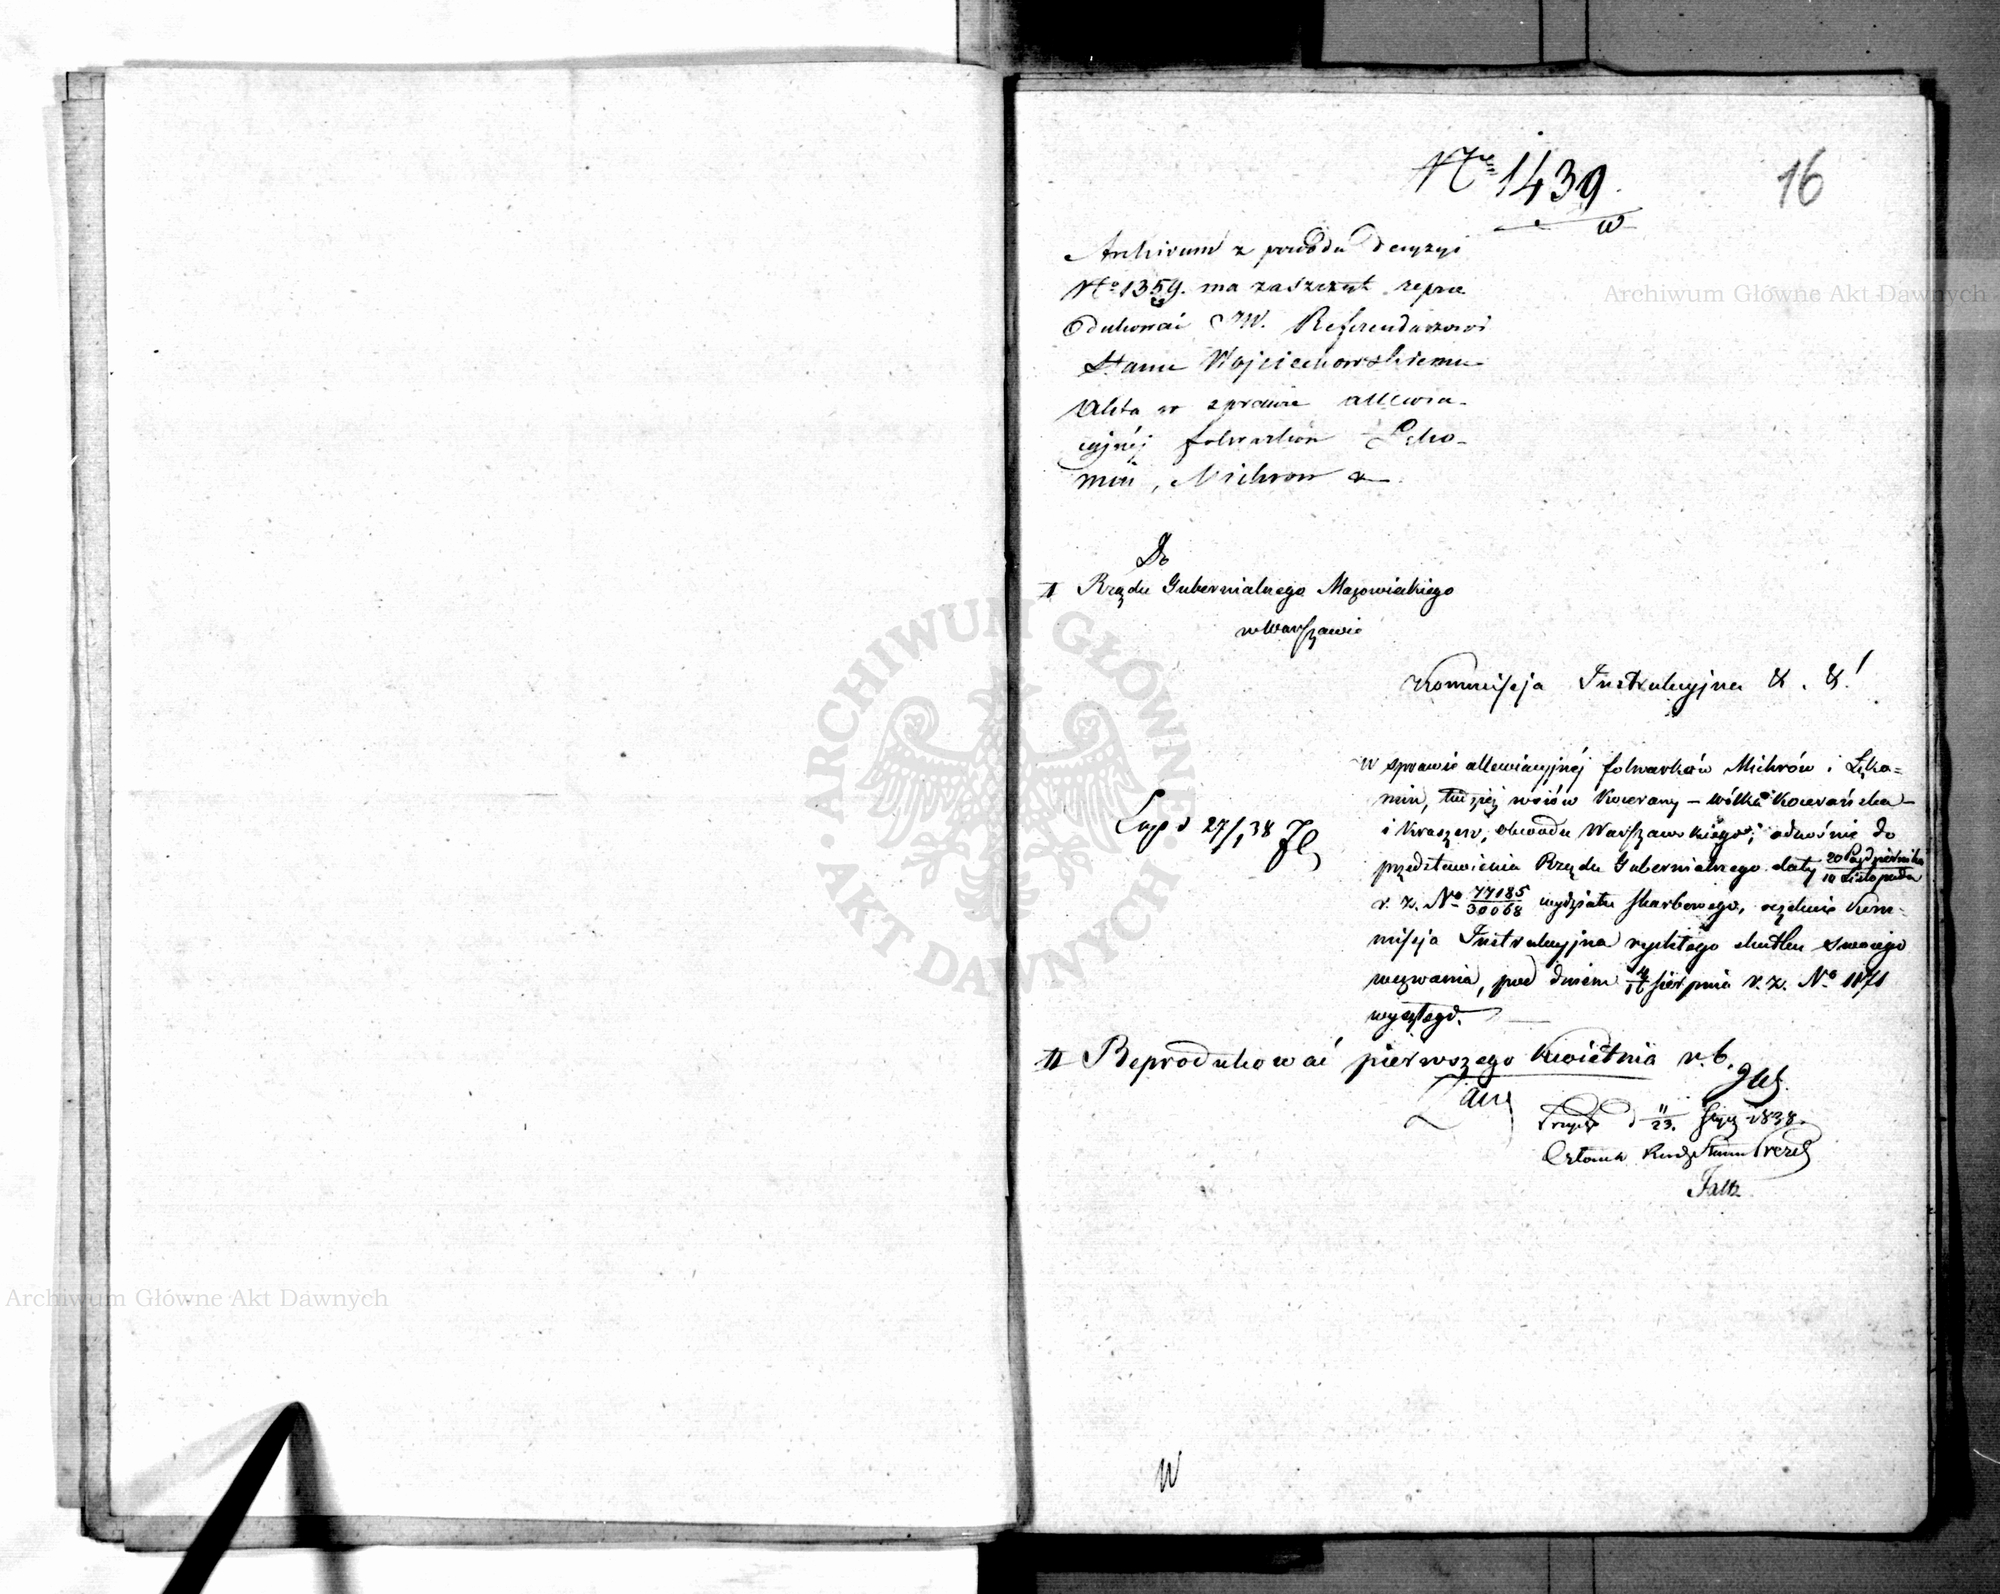 Nro 1439
16
w
Archivum z powodu decyzyi
No 1359. ma zaszczyt repro
dukować JW. Referendarzowi
Stanu Wojciechowskiemu
Akta w sprawie allewia-
cyjnéj folwarków Łęko-
min, Michrow &
Do
I Rządu Gubernialnego Mazowieckiego
w Warszawie
Kommissja Instrukcyjna & . &!
W sprawie allewiacyjnéj folwarków Michrów i Łęko=
min, tudzież wsiów Kocerany – wólka Kocerańska –
i Kraszew, obwodu Warszawskiego; odnośnie do
przedstawienia Rządu Gubernialnego daty 20 Października / 10 Listopada
r. z. No 77185/30068 wydziału skarbowego, oczekuie Kom-
missja Instrukcyjna rychłego skutku swoiego
wezwania, pod dniem 4/16 sierpnia r. z. No 1171
wyszłego.
Exp d 27/1 38
II Reprodukować pierwszego Kwietnia r. b.
d 11/23. Stycz 1838.
Członek Prezd
Archiwum Główne Akt Dawnych
Archiwum Główne Akt Dawnych
ARCHIWUM GŁÓWNE · AKT DAWNYCH ·